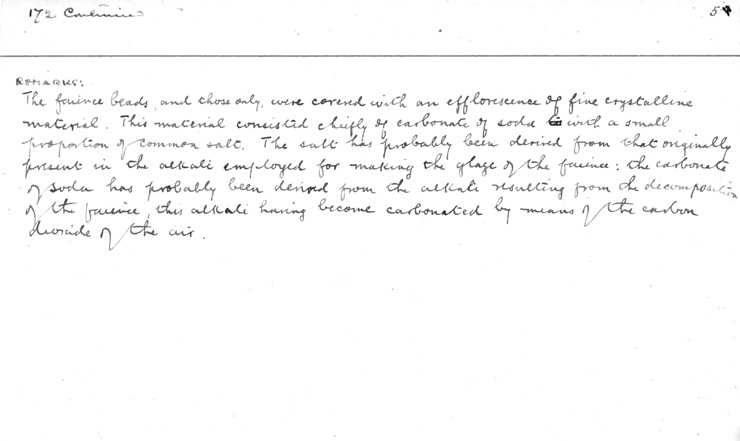 172 Continued
5
REMARKS:
The faience beads, and those only, were covered with an efflorescence of fine crystalline
material. This material consisted chiefly of carbonate of soda with a small
proportion of common salt. The salt has probably been derived from that originally
present in the alkali employed for making the glaze of the faience: the carbonate
of soda has probably been derived from the alkali resulting from the decomposition
of the faience, this alkali having become carbonated by means of the carbon
dioxide of the air.